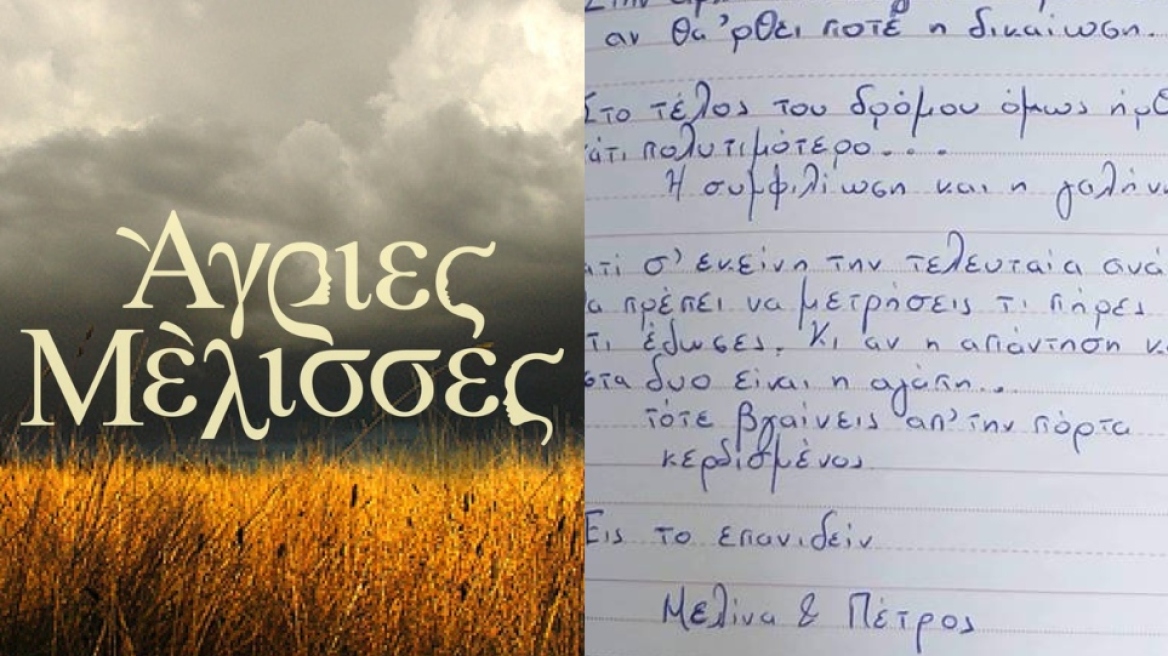 Άγριες
Μέλισσες
αν θα 'ρθει ποτέ η δικαίωση..
Στο τέλος του δρόμου όμως ήρθ
άτι πολυτιμότερο....
Η συμφιλίωση και η γαλήν
ατί σ' εκείνη την τελευταία ανά
α πρέπει να μετρήσεις τι πήρες
τι έδωσες. Κι αν η απάντηση κ
στα δυο είναι η αγάπη...
τότε βγαίνεις απ' την πόρτα
κερδισμένος.
Εις το επανιδείν
Μελίνα & Πέτρος